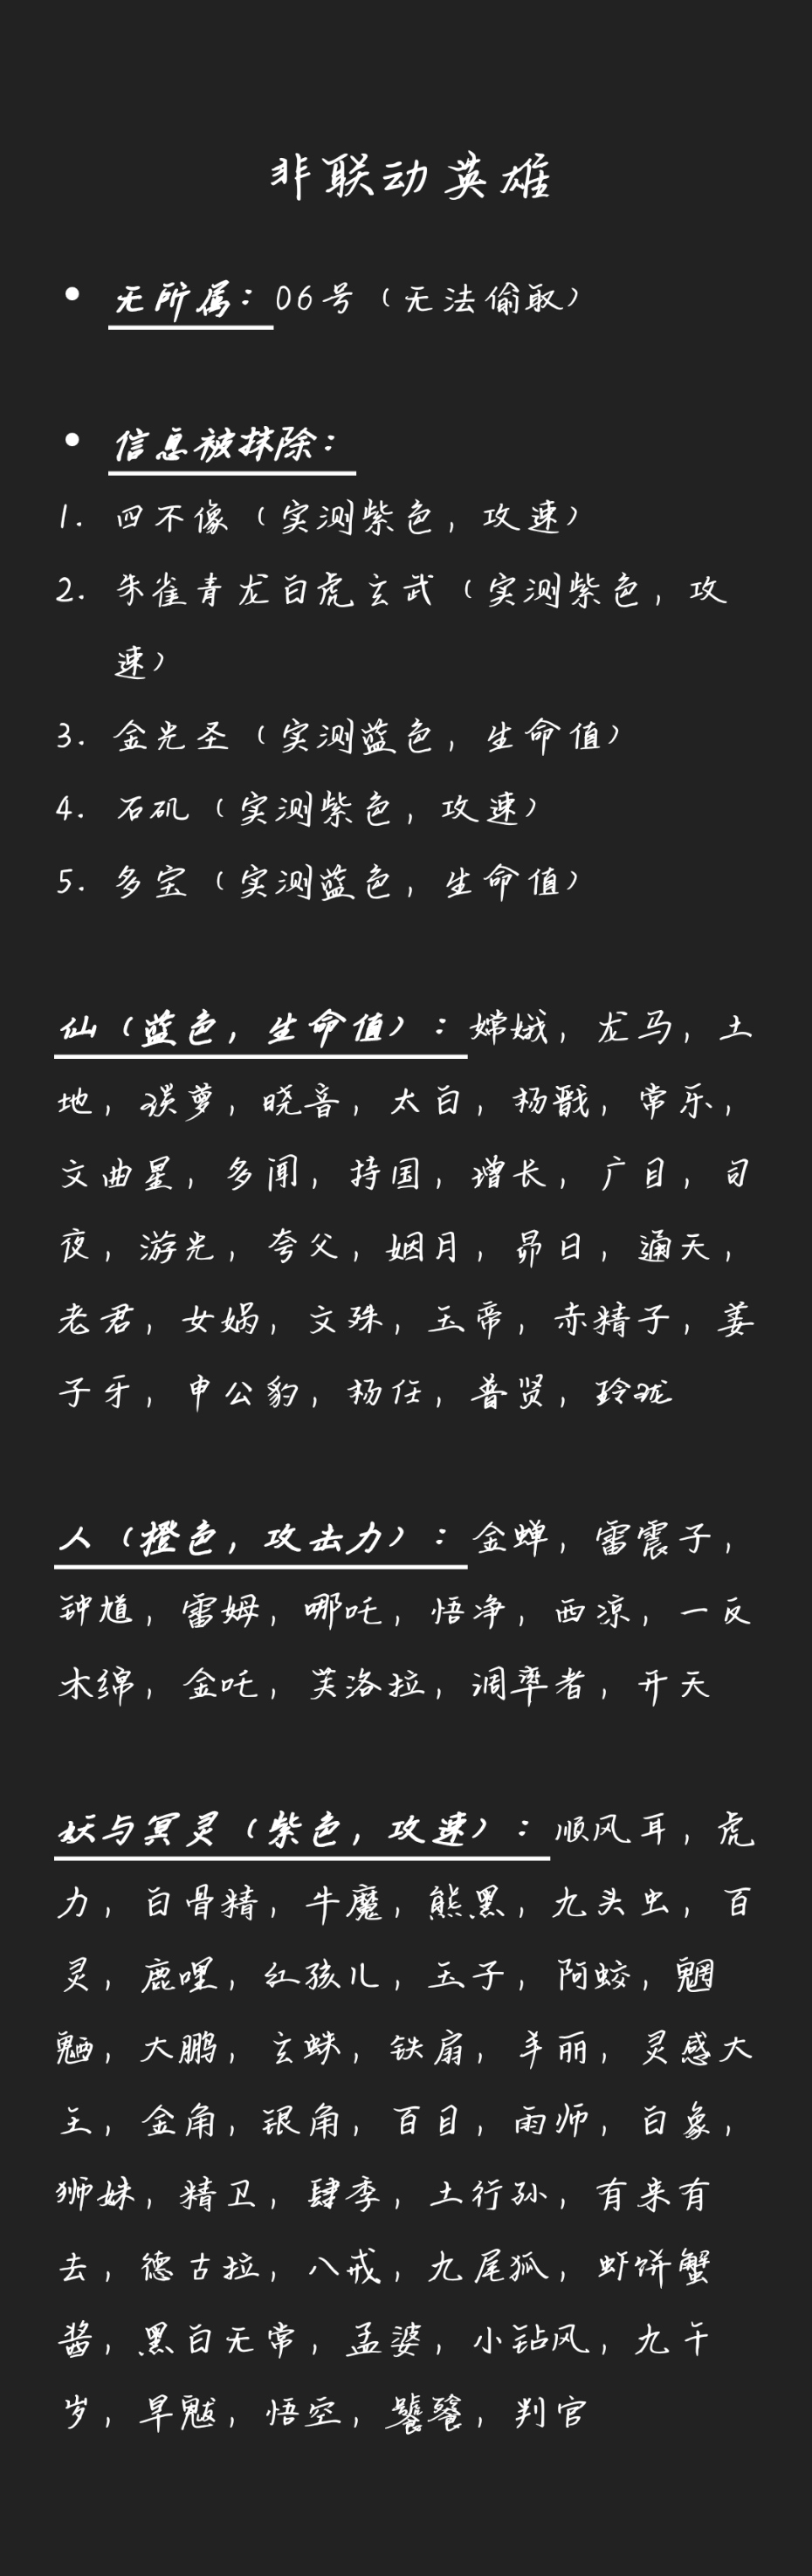 非联动英雄
• 无所属：06号（无法偷取）
• 信息被抹除：
1. 四不像（实测紫色，攻速）
2. 朱雀青龙白虎玄武（实测紫色，攻
速）
3. 金光圣（实测蓝色，生命值）
4. 石矶（实测紫色，攻速）
5. 多宝（实测蓝色，生命值）
仙（蓝色，生命值）：嫦娥，龙马，土
地，璞萝，晓音，太白，杨戬，常乐，
文曲星，多闻，持国，增长，广目，司
夜，游光，夸父，姻月，昴日，通天，
老君，女娲，文殊，玉帝，赤精子，姜
子牙，申公豹，杨任，普贤，玲珑
人（橙色，攻击力）：金蝉，雷震子，
钟馗，雷姆，哪吒，悟净，西凉，一反
木绵，金吒，芙洛拉，调率者，开天
妖与冥灵（紫色，攻速）：顺风耳，虎
力，白骨精，牛魔，熊黑，九头虫，百
灵，鹿哩，红孩儿，玉子，阿蛟，魍
魉，大鹏，玄蛛，铁扇，羊丽，灵感大
王，金角，银角，百目，雨师，白象，
狮妹，精卫，肆季，土行孙，有来有
去，德古拉，八戒，九尾狐，虾饼蟹
酱，黑白无常，孟婆，小钻风，九千
岁，旱魃，悟空，饕餮，判官